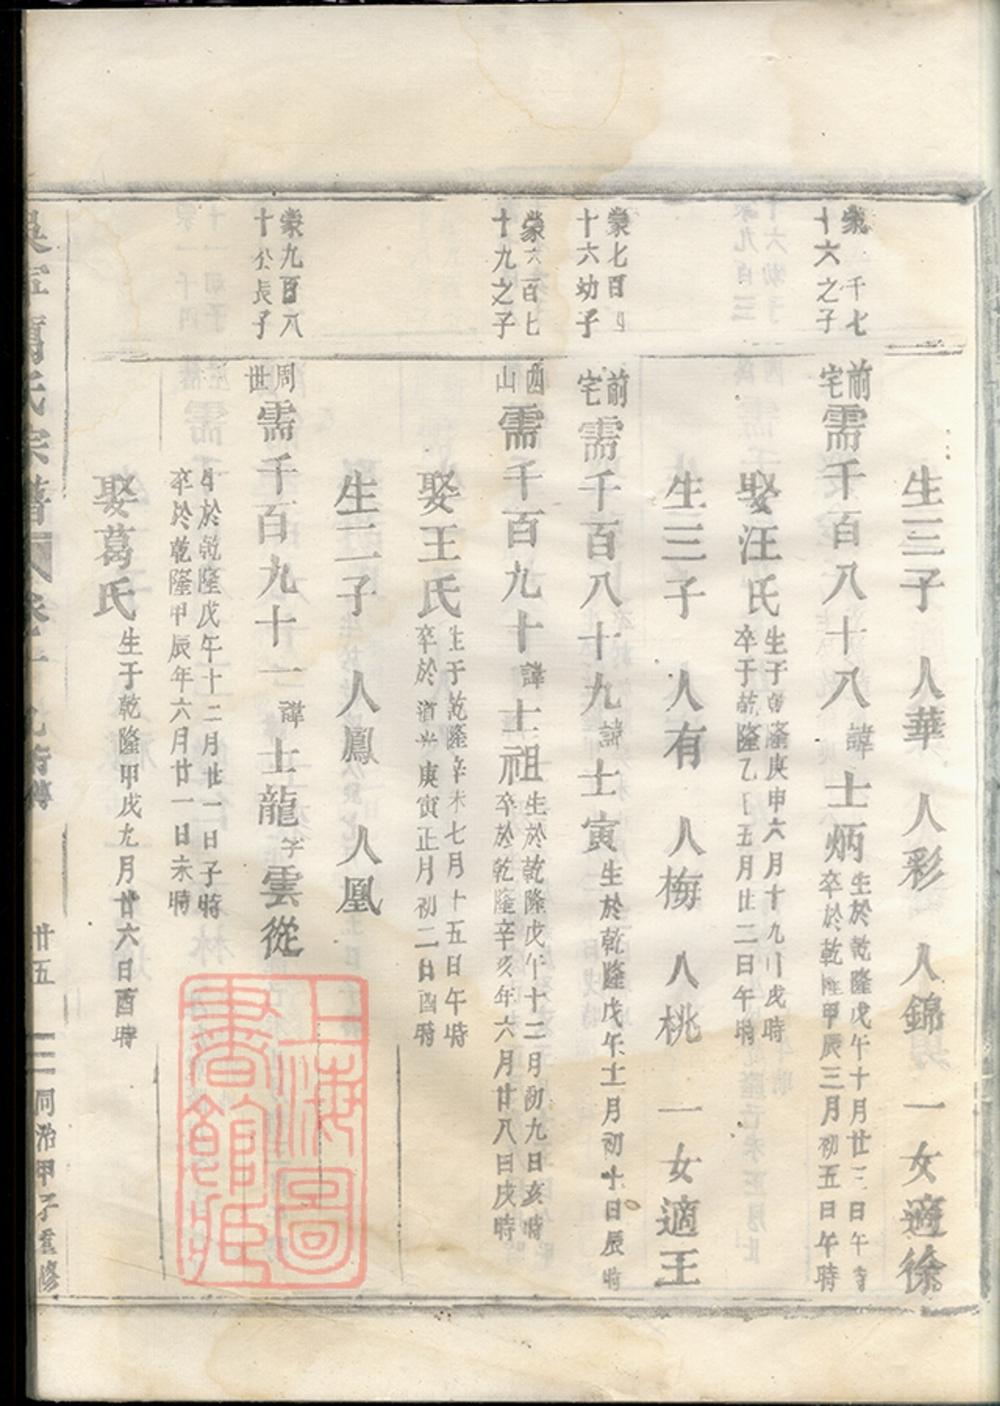 生三子　人華　人彩　人錦　一女適徐
千七
十六之子
前宅需千百八十八諱士炳
生於乾隆戊午十月廿三日午
卒於乾隆甲辰三月初五日午時
娶汪氏
生于乾隆庚申六月十九日戌時
卒于乾隆乙五月廿二日午時
生三子　人有　人梅　人桃　一女適王
蒙七百
十六幼子
前宅需千百八十九諱士寅
生於乾隆戊午十二月初十日辰時
蒙六百七
十九之子
西山需千百九十諱士祖
生於乾隆戊午十二月初九日亥時
卒於乾隆辛亥年六月廿八日戌時
娶王氏
生于乾隆辛未七月十五日午時
卒於道光庚寅正月初二日酉時
生二子　人鳳　人凰
蒙九百八
十公長子
周世需千百九十一諱士龍字雲從
生於乾隆戊午十二月廿一日子時
卒於乾隆甲辰年六月廿一日未時
娶葛氏
生于乾隆甲戌九月廿六日酉時
葛氏宗譜
廿五
同治甲子重修
上海圖
書館藏